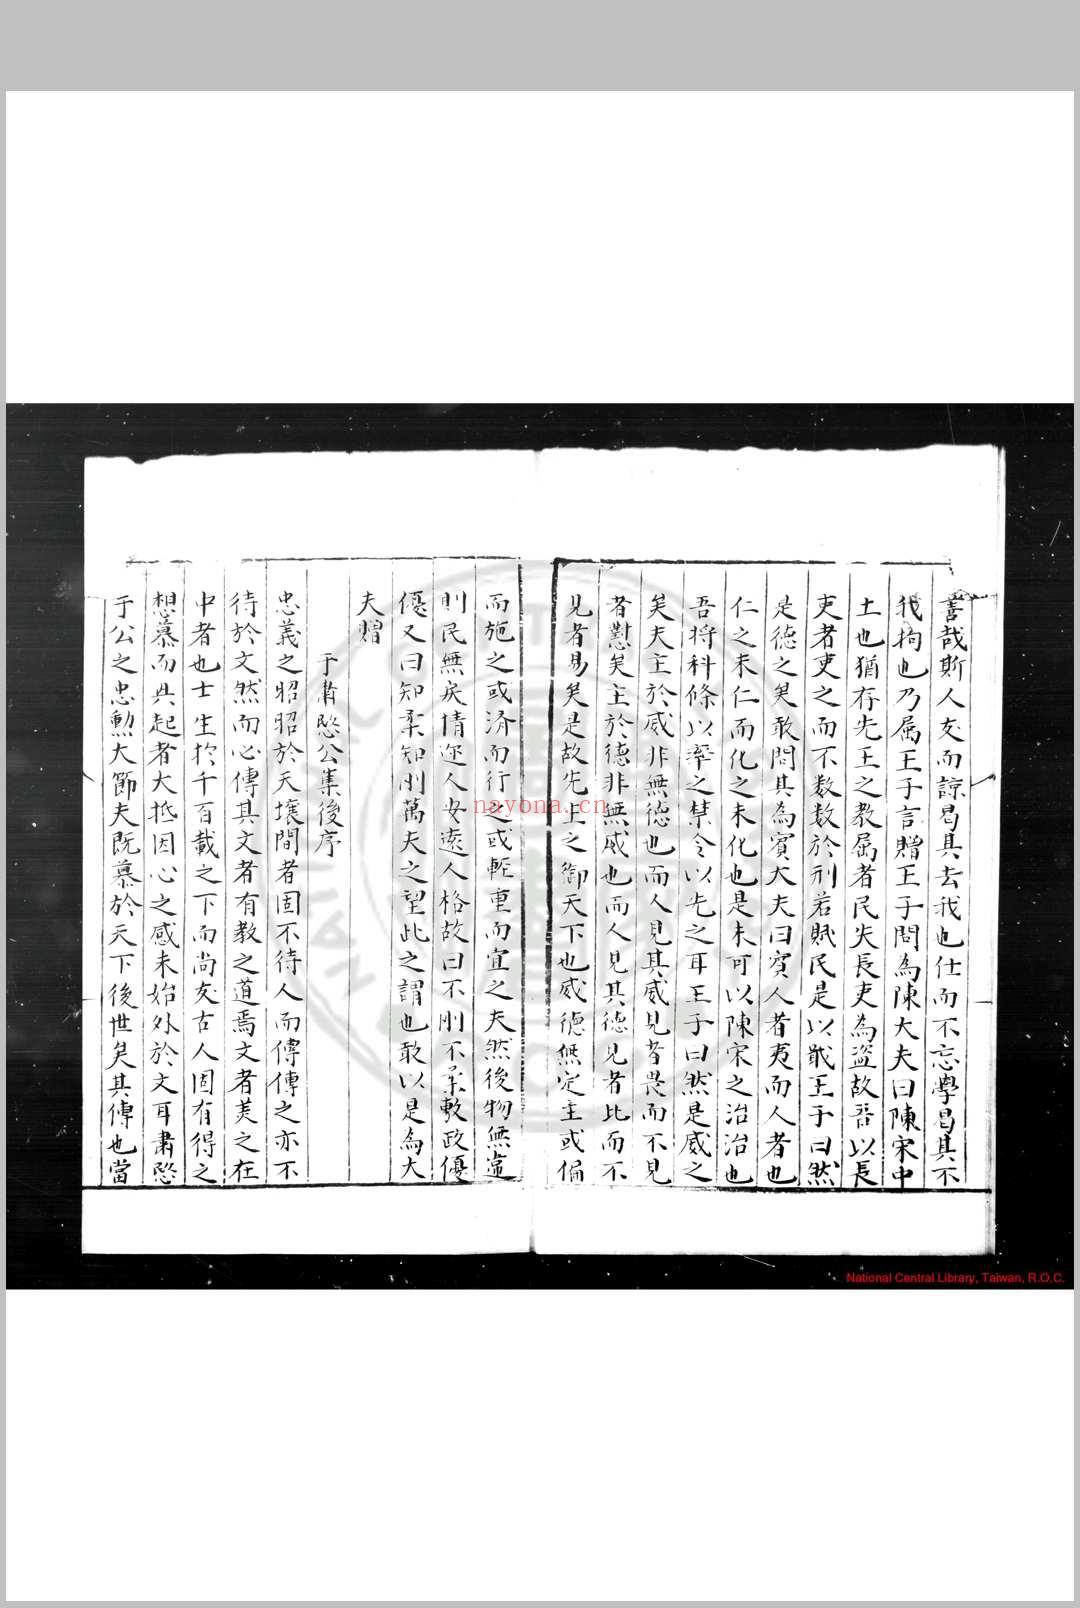 善哉斯人友而諒曷其去我也仕而不忘學曷其不
我拘也乃属王子言贈王子問為陳大夫曰陳宋中
土也猶存先王之教属者民失長吏為盗故吾以長
吏者吏之而不数数於刑若賦民是以戢王子曰然
是德之矣敢問其為賓大夫曰賓人者夷而人者也
仁之未仁而化之未化也是未可以陳宋之治治也
吾将科條以率之禁令以先之耳王子曰然是威之
矣夫主於威非無德也而人見其威見者畏而不見
者懟矣主於德非無威也而人見其德見者比而不
見者易矣是故先王之御天下也威德無定主或偏
而施之或済而行之或輊重而宜之夫然後物無違
則民無戾情迩人安遠人格故曰不刚不柔敷政優
優又曰知柔知刚萬夫之望此之謂也敢以是為大
夫贈
于肅愍公集後序
忠義之昭昭於天壤間者固不待人而傳傳之亦不
待於文然而心傳其文者有教之道焉文者美之在
中者也士生於千百載之下而尚友古人固有得之
想慕而興起者大抵因心之感未始外於文耳肅愍
于公之忠勲大節夫既慕於天下後世矣其傳也當
nayona.cn
National Central Library, Taiwan, R.O.C.